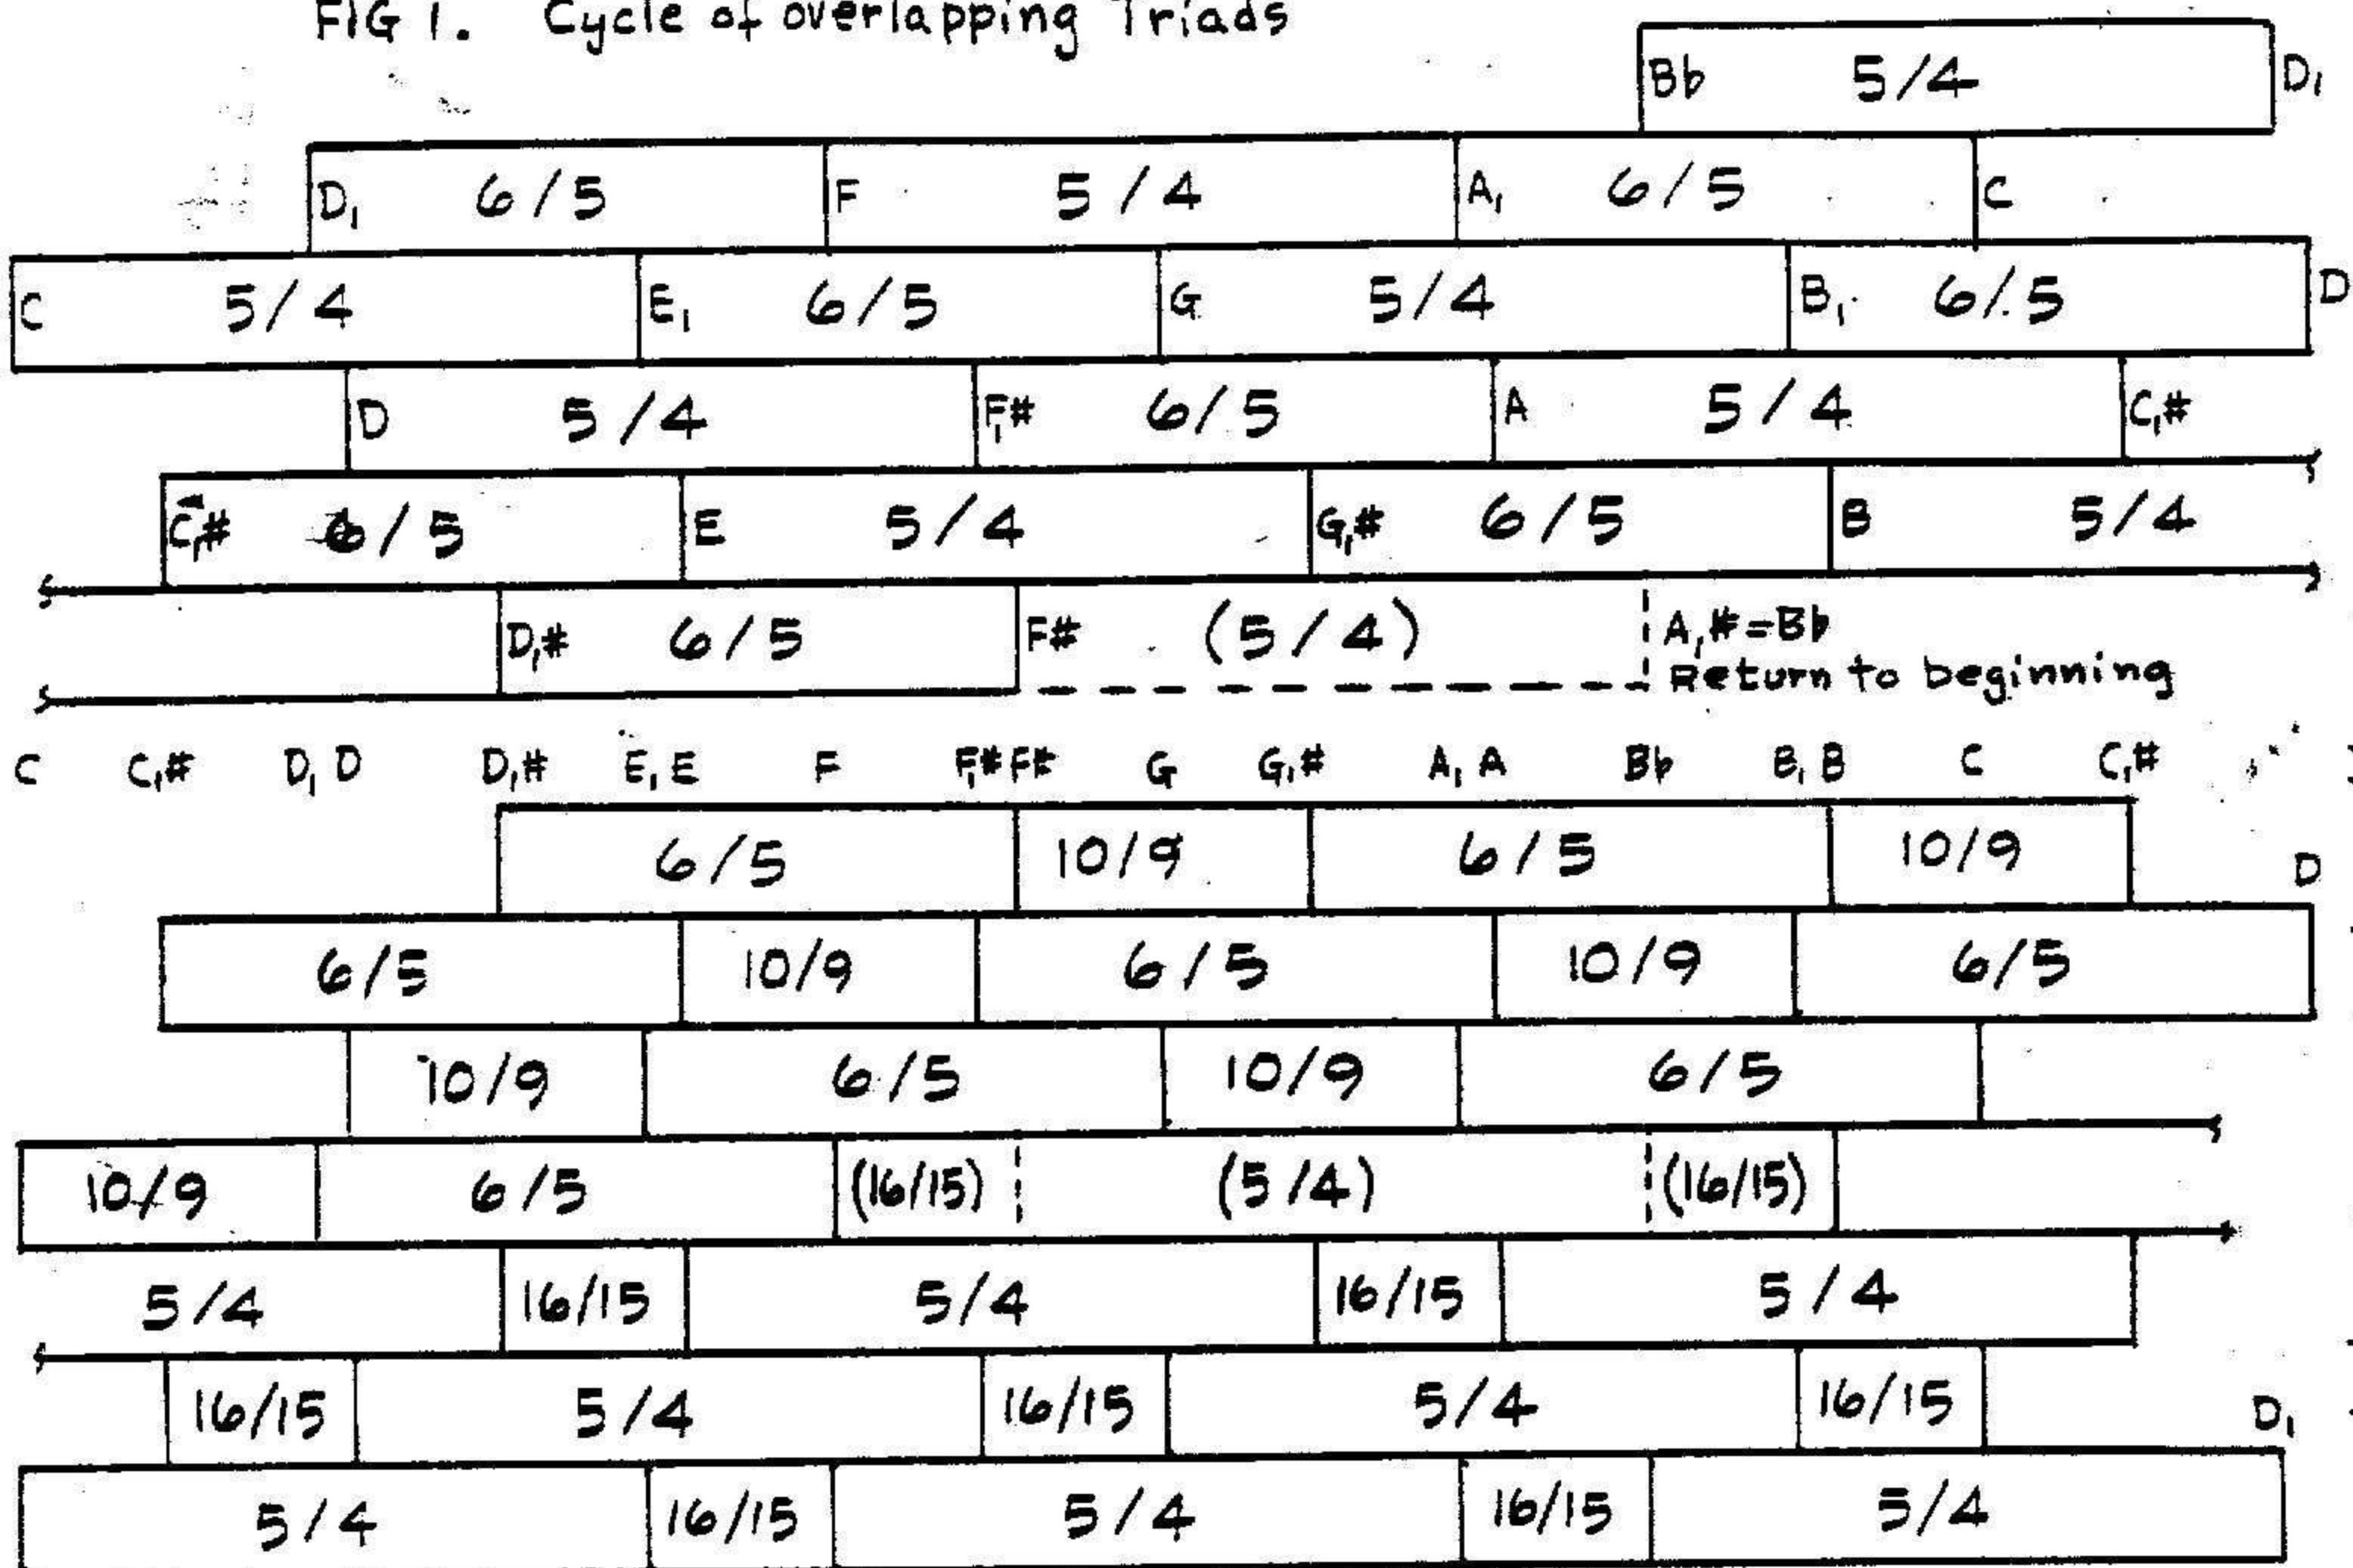 FIG 1. Cycle of overlapping Triads
Bb 5/4 D₁
D₁ 6/5 F 5/4 A₁ 6/5 C
C 5/4 E₁ 6/5 G 5/4 B₁ 6/5 D
D 5/4 F₁# 6/5 A 5/4 C₁#
C₁# 6/5 E 5/4 G₁# 6/5 B 5/4
D₁# 6/5 F# (5/4) A₁#=Bb
Return to beginning
C C₁# D₁ D D₁# E₁ E F F₁# F# G G₁# A₁ A Bb B₁ B C C₁#
6/5 10/9 6/5 10/9 D
6/5 10/9 6/5 10/9 6/5
10/9 6/5 10/9 6/5
10/9 6/5 (16/15) (5/4) (16/15)
5/4 16/15 5/4 16/15 5/4
16/15 5/4 16/15 5/4 16/15 D₁
5/4 16/15 5/4 16/15 5/4